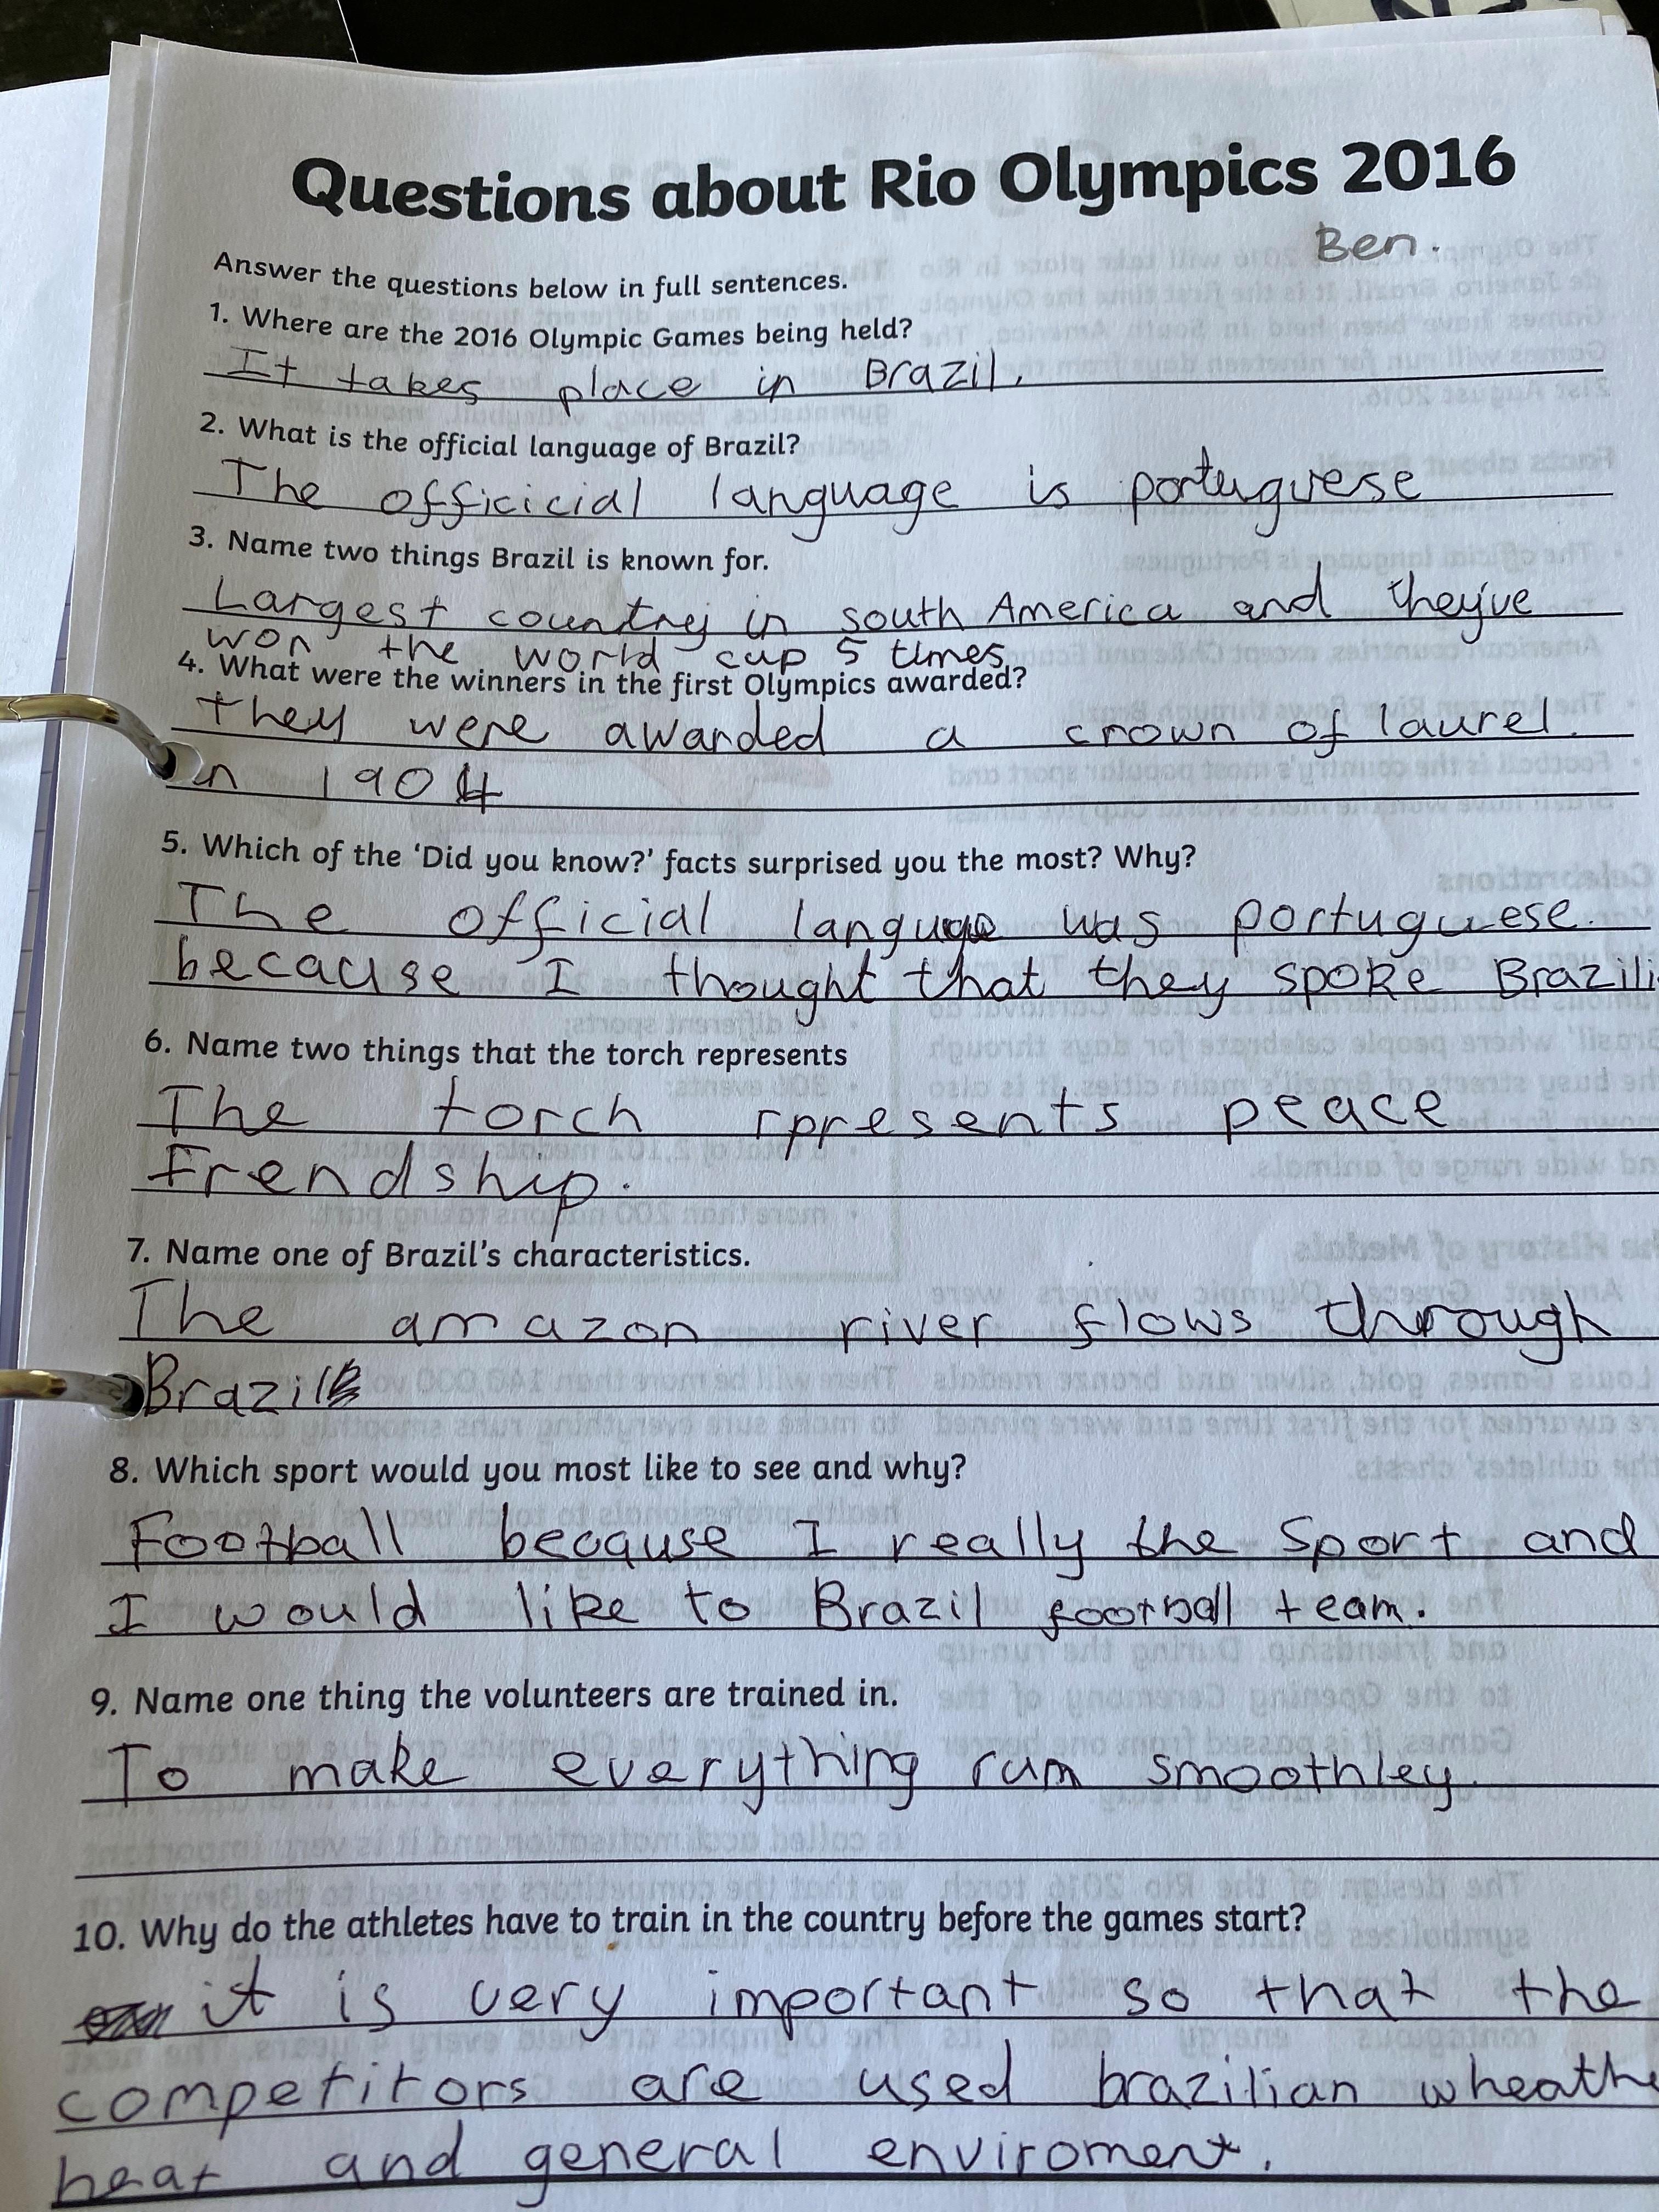 Questions about Rio Olympics 2016
Ben.
Answer the questions below in full sentences.
1. Where are the 2016 Olympic Games being held?
It takes place in Brazil.
2. What is the official language of Brazil?
The officicial language is portuguese
3. Name two things Brazil is known for.
Largest country in south America and they've
won the world cup 5 times.
4. What were the winners in the first Olympics awarded?
they were awarded a crown of laurel.
in 1904
5. Which of the ‘Did you know?’ facts surprised you the most? Why?
The official language was portuguese.
because I thought that they spoke Brazili
6. Name two things that the torch represents
The torch rpresents peace
frendship.
7. Name one of Brazil’s characteristics.
The amazon river flows through
Brazil
8. Which sport would you most like to see and why?
Football because I really the sport and
I would like to Brazil football team.
9. Name one thing the volunteers are trained in.
To make everything run smoothley.
10. Why do the athletes have to train in the country before the games start?
it is very important so that the
competitors are used brazilian wheathe
heat and general enviroment.